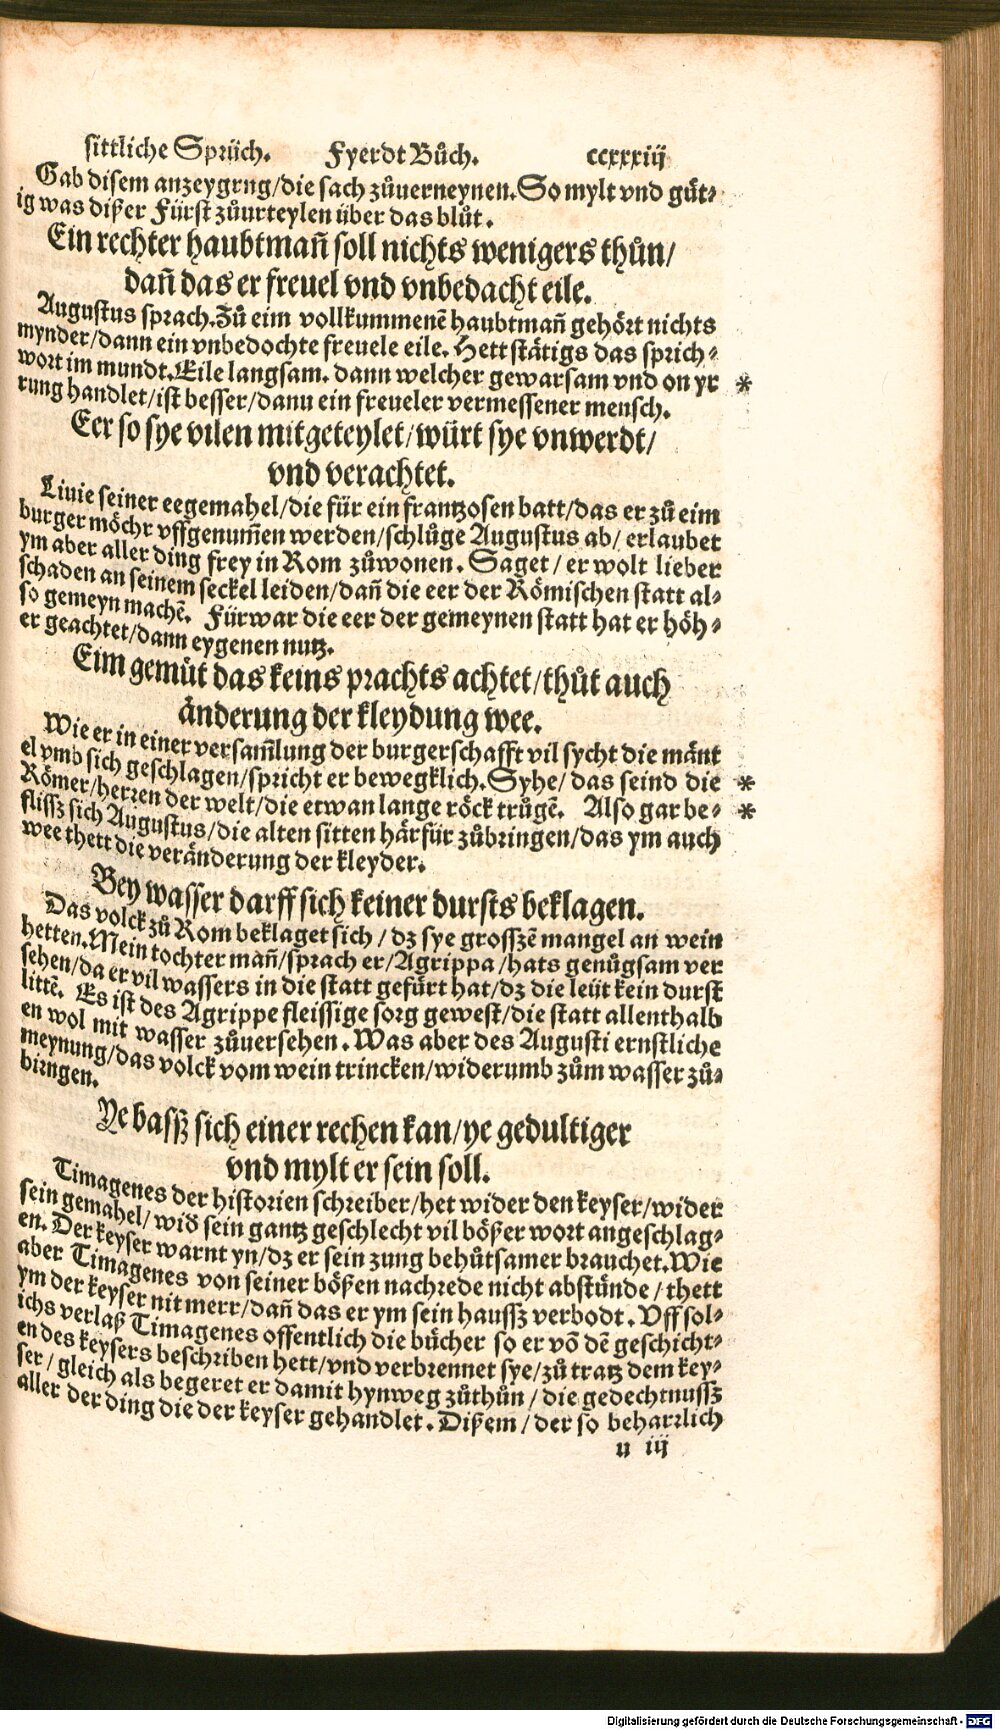 sittliche Sprüch. Fyerdt Bůch. ccxxxiij
Gab disem anzeygrng/die sach zůuerneynen. So mylt vnd güt⸗
ig was dißer Fürst zůurteylen über das blůt.
Ein rechter haubtmañ soll nichts wenigers thůn/
dañ das er freuel vnd vnbedacht eile.
Augustus sprach. Zů eim vollkummenē haubtmañ gehört nichts
mynder/dann ein vnbedochte freuele eile. Hett stätigs das sprich⸗
wort im mundt. Eile langsam. dann welcher gewarsam vnd on yr *
rung handlet/ist besser/dann ein freueler vermessener mensch.
Eer so sye vilen mitgeteylet/würt sye vnwerdt/
vnd verachtet.
Liuie seiner eegemahel/die für ein frantzosen batt/das er zů eim
burger möchr vffgenum̃en werden/schlůge Augustus ab/ erlaubet
ym aber aller ding frey in Rom zůwonen. Saget/ er wolt lieber
schaden an seinem seckel leiden/dañ die eer der Römischen statt al⸗
so gemeyn machē. Fürwar die eer der gemeynen statt hat er höh⸗
er geachtet/dann eygenen nutz.
Eim gemüt das keins prachts achtet/thůt auch
änderung der kleydung wee.
Wie er in einer versam̃lung der burgerschafft vil sycht die mänt
el vmb sich geschlagen/spricht er bewegklich. Syhe/ das seind die *
Römer/herren der welt/die etwan lange röck trůgē. Also gar be⸗ *
flissz sich Augustus/die alten sitten härfür zůbringen/das ym auch
wee thett die veränderung der kleyder.
Bey wasser darff sich keiner dursts beklagen.
Das volck zů Rom beklaget sich / dz sye grosszē mangel an wein
hetten. Mein tochter mañ/sprach er/Agrippa/hats genůgsam ver
sehen/da er vil wassers in die statt gefürt hat/dz die leüt kein durst
littē. Es ist des Agrippe fleissige sorg gewest/die statt allenthalb
en wol mit wasser zůuersehen. Was aber des Augusti ernstliche
meynung/das volck vom wein trincken/widerumb zům wasser zů⸗
birngen.
Ye bassz sich einer rechen kan/ye gedultiger
vnd mylt er sein soll.
Timagenes der historien schreiber/het wider den keyser/wider
sein gemahel/ wid̄ sein gantz geschlecht vil bößer wort angeschlag⸗
en. Der keyser warnt yn/dz er sein zung behůtsamer brauchet. Wie
aber Timagenes von seiner bößen nachrede nicht abstünde / thett
ym der keyser nit merr/dañ das er ym sein haussz verbodt. Vff sol⸗
ichs verlaß Timagenes offentlich die bücher so er vō dē geschicht⸗
en des keysers beschriben hett/vnd verbrennet sye/zů tratz dem key⸗
ser/ gleich als begeret er damit hynweg zůthůn/ die gedechtnussz
aller der ding die der keyser gehandlet. Dißem/ der so beharrlich
u iij
Digitalisierung gefördert durch die Deutsche Forschungsgemeinschaft - DFG